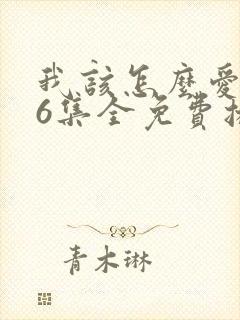 我該怎麼愛
6集全免費
青木琳